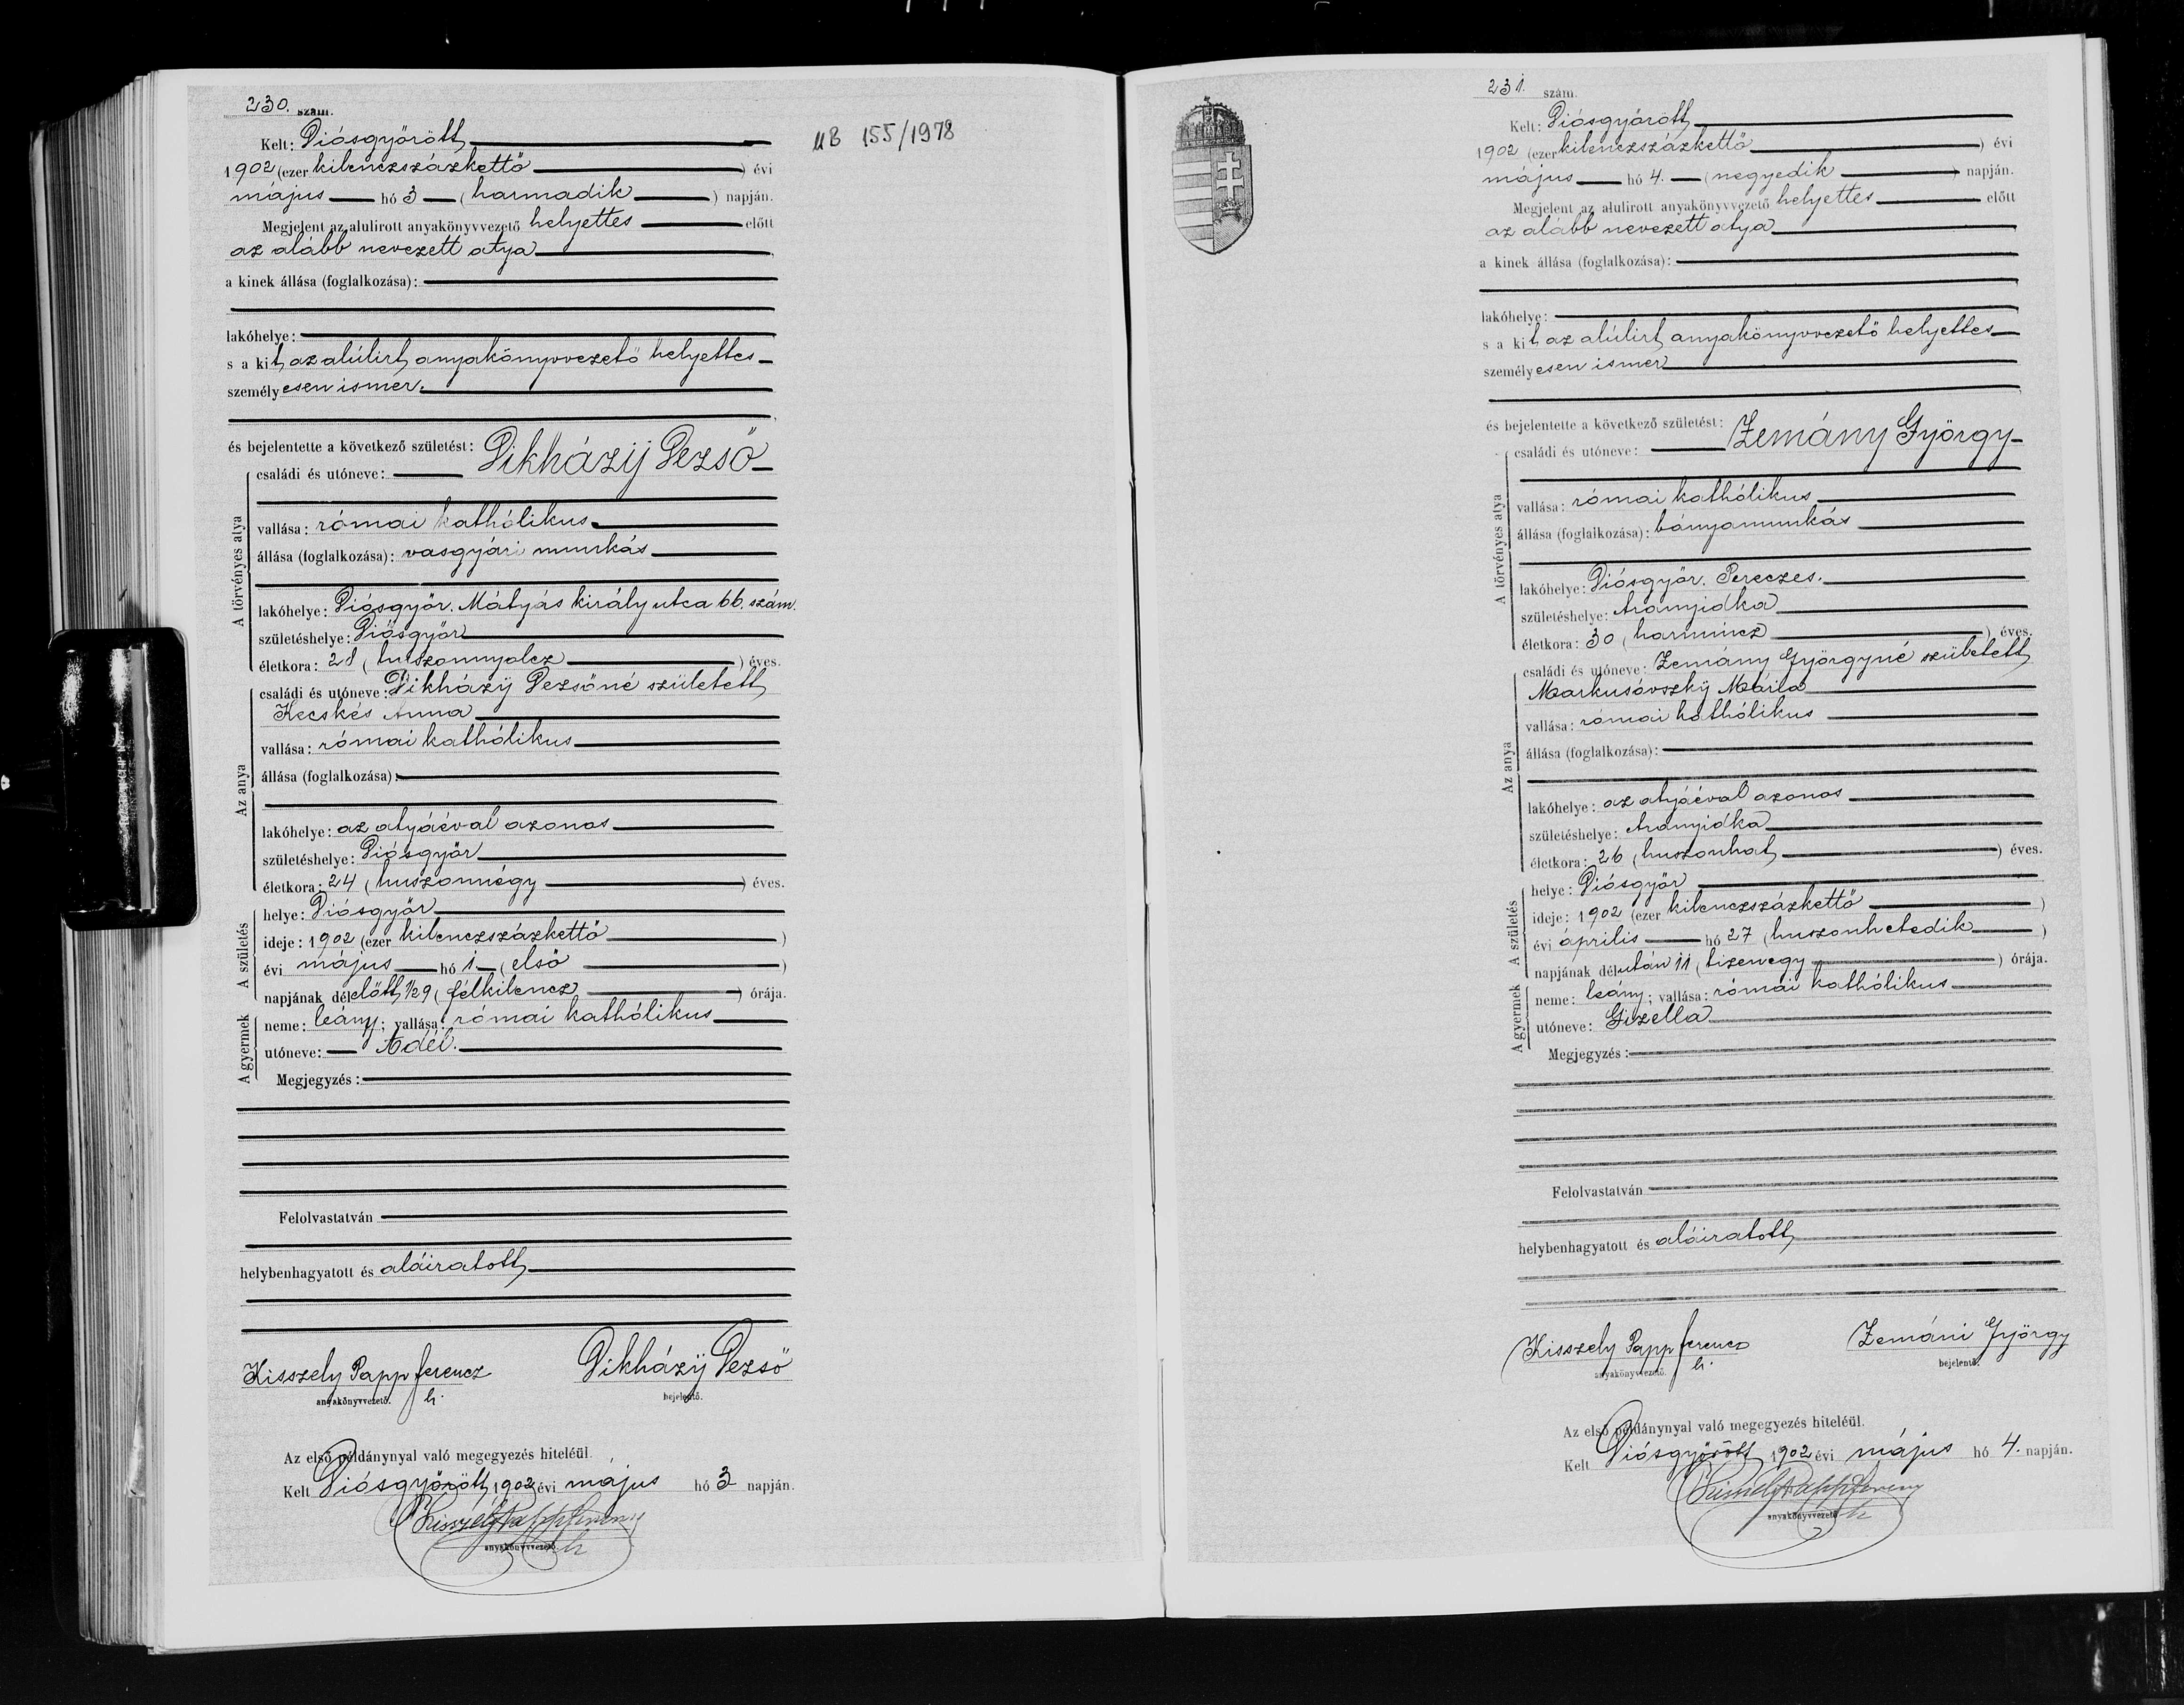 230. szám.
UB 155/1978
Kelt: Diósgyőrött
1902 (ezer kilenczszázkettő) évi
május hó 3 (harmadik) napján.
Megjelent az alulirott anyakönyvvezető helyettes előtt
az alább nevezett atya
a kinek állása (foglalkozása):
lakóhelye:
s a kit az alúlirt anyakönyvvezető helyettes
személyesen ismer.
és bejelentette a következő születést:
A törvényes atya
családi és utóneve: Dikházÿ Dezső
vallása: római kathólikus
állása (foglalkozása): vasgyári munkás
lakóhelye: Diósgyőr. Mátyás király utca 66. szám.
születéshelye: Diósgyőr
életkora: 28 (huszonnyolcz) éves.
Az anya
családi és utóneve: Dikházÿ Dezsőné született
Kecskés Anna
vallása: római kathólikus
állása (foglalkozása):
lakóhelye: az atyáéval azonos
születéshelye: Diósgyőr
életkora: 24 (huszonnégy) éves.
A születés
helye: Diósgyőr
ideje: 1902 (ezer kilenczszázkettő)
évi május hó 1 (első)
napjának délelőtt 1/29 (félkilencz) órája.
A gyermek
neme: leány; vallása: római kathólikus
utóneve: Adél.
Megjegyzés:
Felolvastatván
helybenhagyatott és aláiratott
Kisszely Papp Ferencz Dikházÿ Dezső
h.
anyakönyvvezető. bejelentő.
Az első példánynyal való megegyezés hiteléül.
Kelt Diósgyőrött, 1902 évi május hó 3 napján.
Kisszely Papp Ferencz
h
anyakönyvvezető.
231. szám.
Kelt: Diósgyőrött
1902 (ezer kilenczszázkettő) évi
május hó 4. (negyedik) napján.
Megjelent az alulirott anyakönyvvezető helyettes előtt
az alább nevezett atya
a kinek állása (foglalkozása):
lakóhelye:
s a kit az alúlirt anyakönyvvezető helyettes
személyesen ismer
és bejelentette a következő születést:
A törvényes atya
családi és utóneve: Zemány György
vallása: római kathólikus
állása (foglalkozása): bányamunkás
lakóhelye: Diósgyőr. Pereczes.
születéshelye: Aranyidka
életkora: 30 (harmincz) éves.
Az anya
családi és utóneve: Zemány Györgyné született
Markusóvszkÿ Mária
vallása: római kathólikus
állása (foglalkozása):
lakóhelye: az atyáéval azonos
születéshelye: Aranyidka
életkora: 26 (huszonhat) éves.
A születés
helye: Diósgyőr
ideje: 1902 (ezer kilenczszázkettő)
évi április hó 27 (huszonhetedik)
napjának délután 11 (tizenegy) órája.
A gyermek
neme: leány; vallása: római kathólikus
utóneve: Gizella
Megjegyzés:
Felolvastatván
helybenhagyatott és aláiratott
Kisszely Papp Ferencz Zemáni György
h.
anyakönyvvezető. bejelentő.
Az első példánynyal való megegyezés hiteléül.
Kelt Diósgyőrött 1902 évi május hó 4. napján.
Kisszely Papp Ferencz
h
anyakönyvvezető